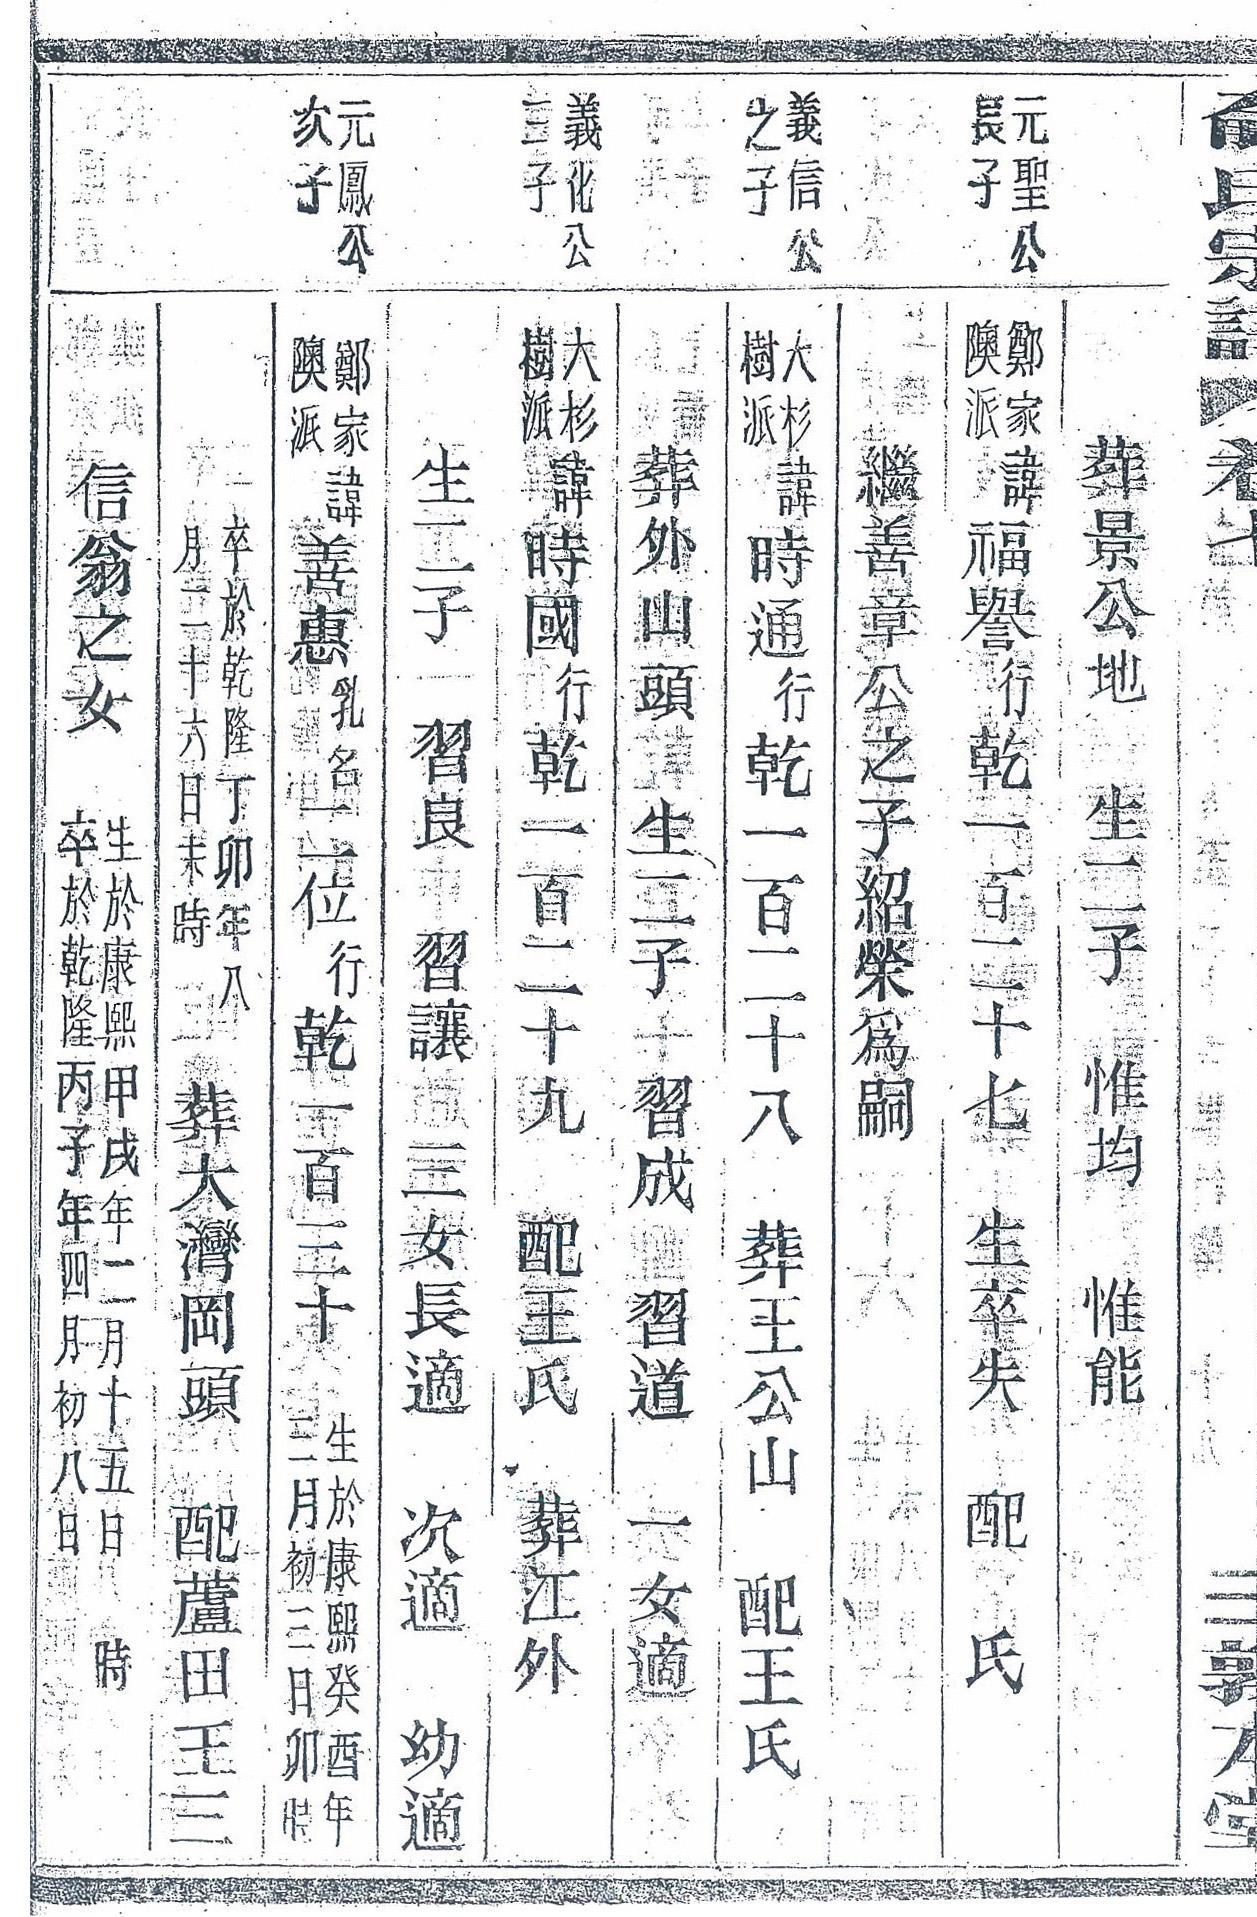 氏宗譜 卷七 三 敦本堂
葬景公地 生二子 惟均 惟能
元聖公長子 鄭家隩派 諱福譽行乾一百二十七 生卒失 配 氏
繼善章公之子紹榮為嗣
義信公之子 大杉樹派 諱時通行乾一百二十八 葬王公山 配王氏
葬外山頭 生二子 習成 習道 一女適
義化公三子 大杉樹派 諱時國行乾一百二十九 配王氏 葬江外
生二子 習良 習讓 三女長適 次適 幼適
元鳳公次子 鄭家隩派 諱善惠乳名 位行乾一百三十 生於康熙癸酉年三月初三日卯時
卒於乾隆丁卯年八月二十六日未時 葬大灣岡頭 配蘆田王三
信翁之女 生於康熙甲戌年二月十五日 時 卒於乾隆丙子年四月初八日